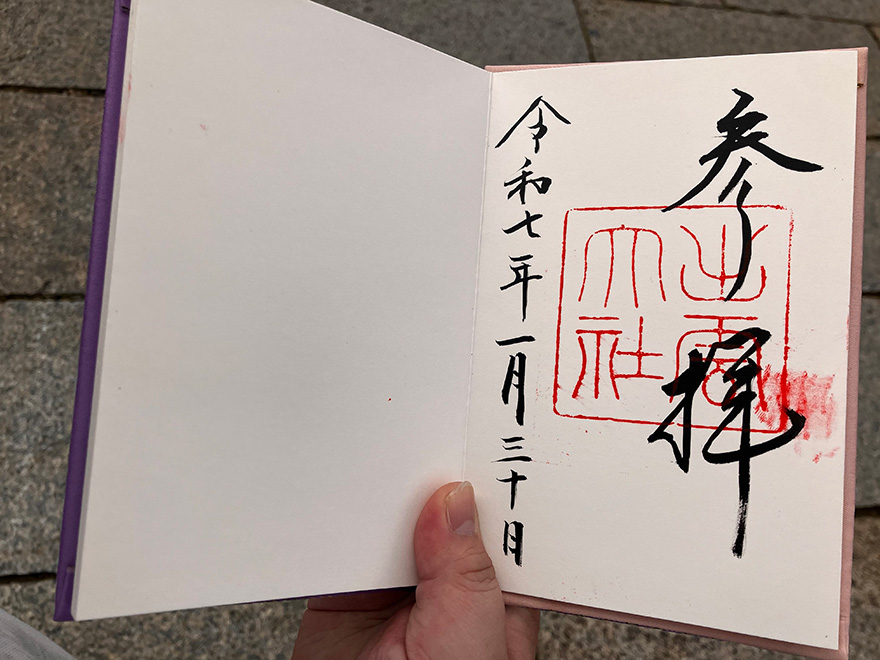 参拝
出雲
大社
令和七年一月三十日